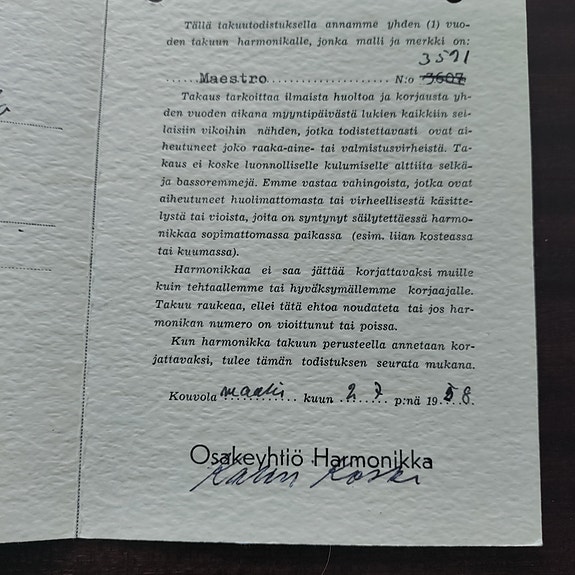 Tällä takuutodistuksella annamme yhden (1) vuo-
den takuun harmonikalle, jonka malli ja merkki on:
3591
......Maestro..................... N:o 3607
Takaus tarkoittaa ilmaista huoltoa ja korjausta yh-
den vuoden aikana myyntipäivästä lukien kaikkiin sel-
laisiin vikoihin nähden, jotka todistettavasti ovat ai-
heutuneet joko raaka-aine- tai valmistusvirheistä. Ta-
kaus ei koske luonnolliselle kulumiselle alttiita selkä-
ja bassoremmejä. Emme vastaa vahingoista, jotka ovat
aiheutuneet huolimattomasta tai virheellisestä käsitte-
lystä tai vioista, joita on syntynyt säilytettäessä harmo-
nikkaa sopimattomassa paikassa (esim. liian kosteassa
tai kuumassa).
Harmonikkaa ei saa jättää korjattavaksi muille
kuin tehtaallemme tai hyväksymällemme korjaajalle.
Takuu raukeaa, ellei tätä ehtoa noudateta tai jos har-
monikan numero on vioittunut tai poissa.
Kun harmonikka takuun perusteella annetaan kor-
jattavaksi, tulee tämän todistuksen seurata mukana.
Kouvola maalis kuun 27 p:nä 1958.
Osakeyhtiö Harmonikka
Koski